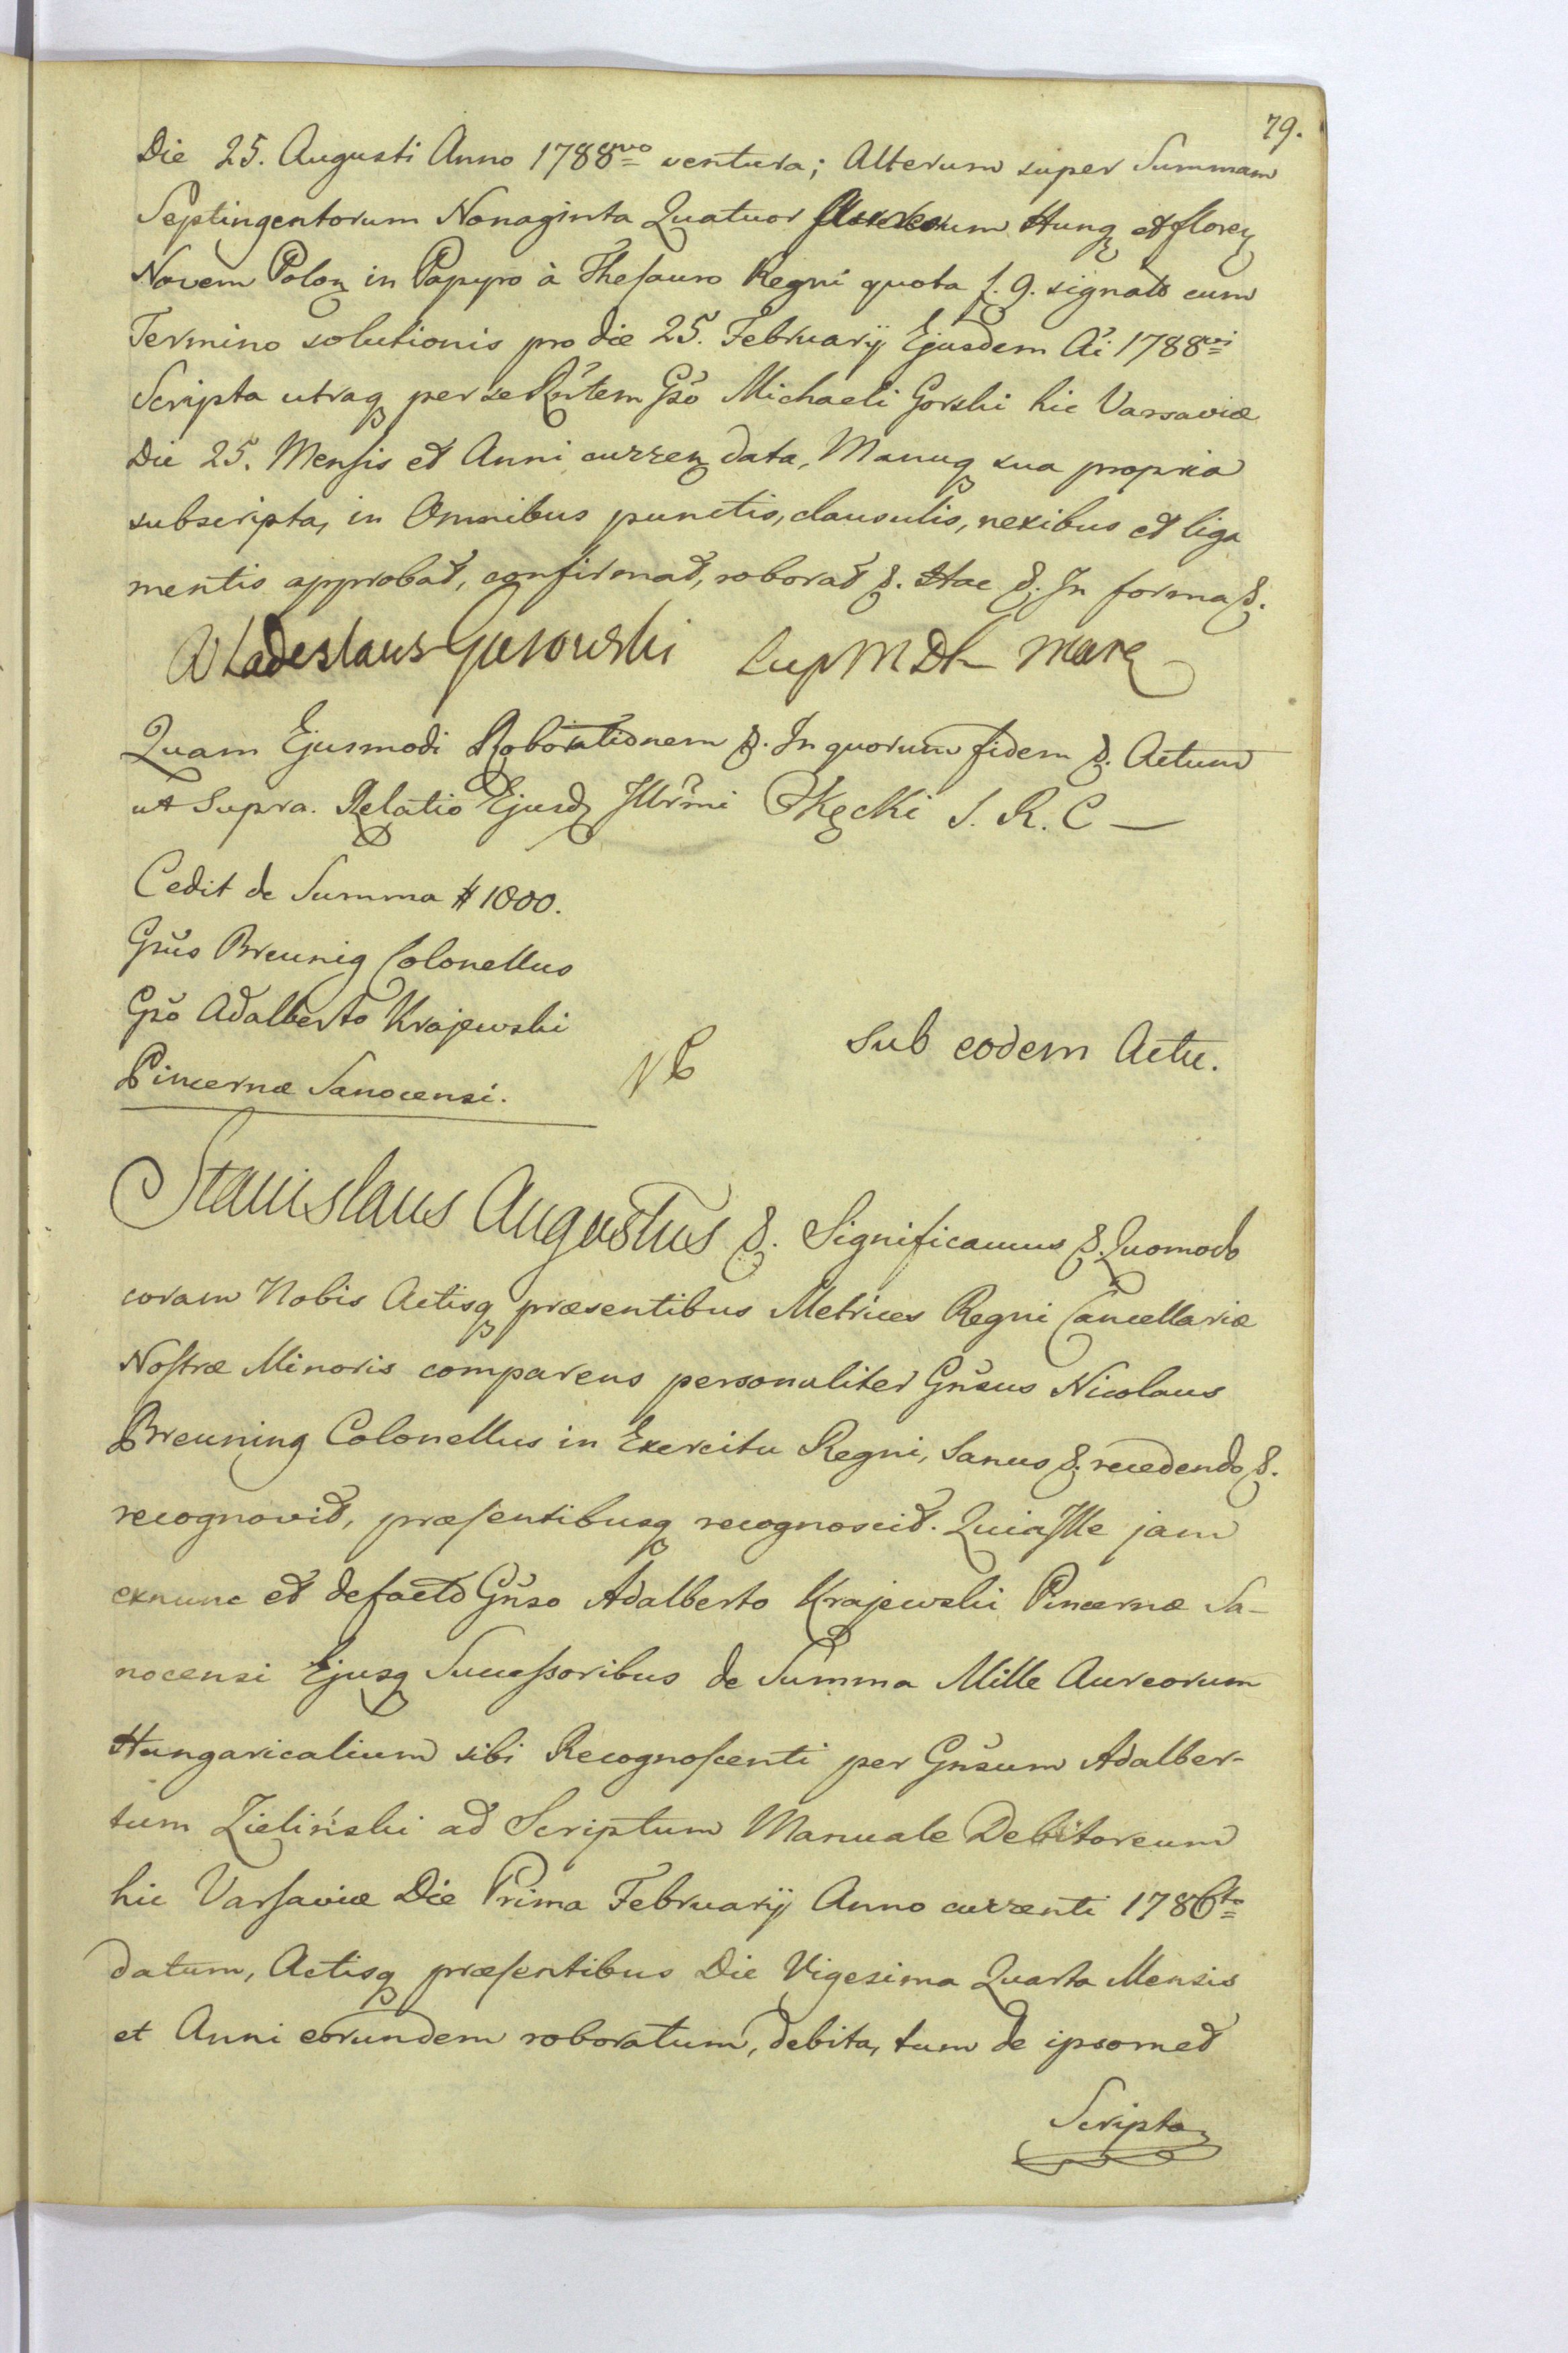 79.
Die 25. Augusti Anno 1788vo ventura; Alterum super Summam
Septingentorum Nonaginta Quatuor Aureorum Hung et floren
Novem Polon in Papyro à Thesauro Regni quota f. 9. signato cum
Termino solutionis pro die 25. Februarij Ejusdem Ai 1788vi
Scripta utraq per se Rntem Gso Michaeli Gorski hic Varsaviæ
Die 25. Mensis et Anni curren data, Manuq sua propria
subscripta, in Omnibus punctis, clausulis, nexibus et liga
mentis approbat, confirmat, roborat &. Hac &. In forma &.
Wladeslaus Gurowski
Quam Ejusmodi Roborationem &. In quorum fidem &. Actum
ut Supra. Relatio Ejusd Illrmi Okęcki S. R. C
Cedit de Summa # 1000.
Gsus Breunig Colonellus
Gso Adalberto Krajewski
Pincernæ Sanocensi.
sub eodem Actu.
Stanislaus Augustus &. Significamus &. Quomodo
coram Nobis Actisq præsentibus Metrices Regni Cancellariæ
Nostræ Minoris comparens personaliter Gnsus Nicolaus
Breuning Colonellus in Exercitu Regni, Sanus &. recedendo &.
recognovit, præsentibusq recognoscit. Quia Ille jam
exnunc et defacto Gnso Adalberto Krajewski Pincernæ Sa-
nocensi Ejusq Successoribus de Summa Mille Aureorum
Hungaricalium sibi Recognoscenti per Gnsum Adalber-
tum Zieliński ad Scriptum Manuale Debitoreum
hic Varsaviæ Die Prima Februarij Anno currenti 1786to
datum, Actisq præsentibus Die Vigesima Quarta Mensis
et Anni eorundem roboratum, debita, tum de ipsomet
Scripto